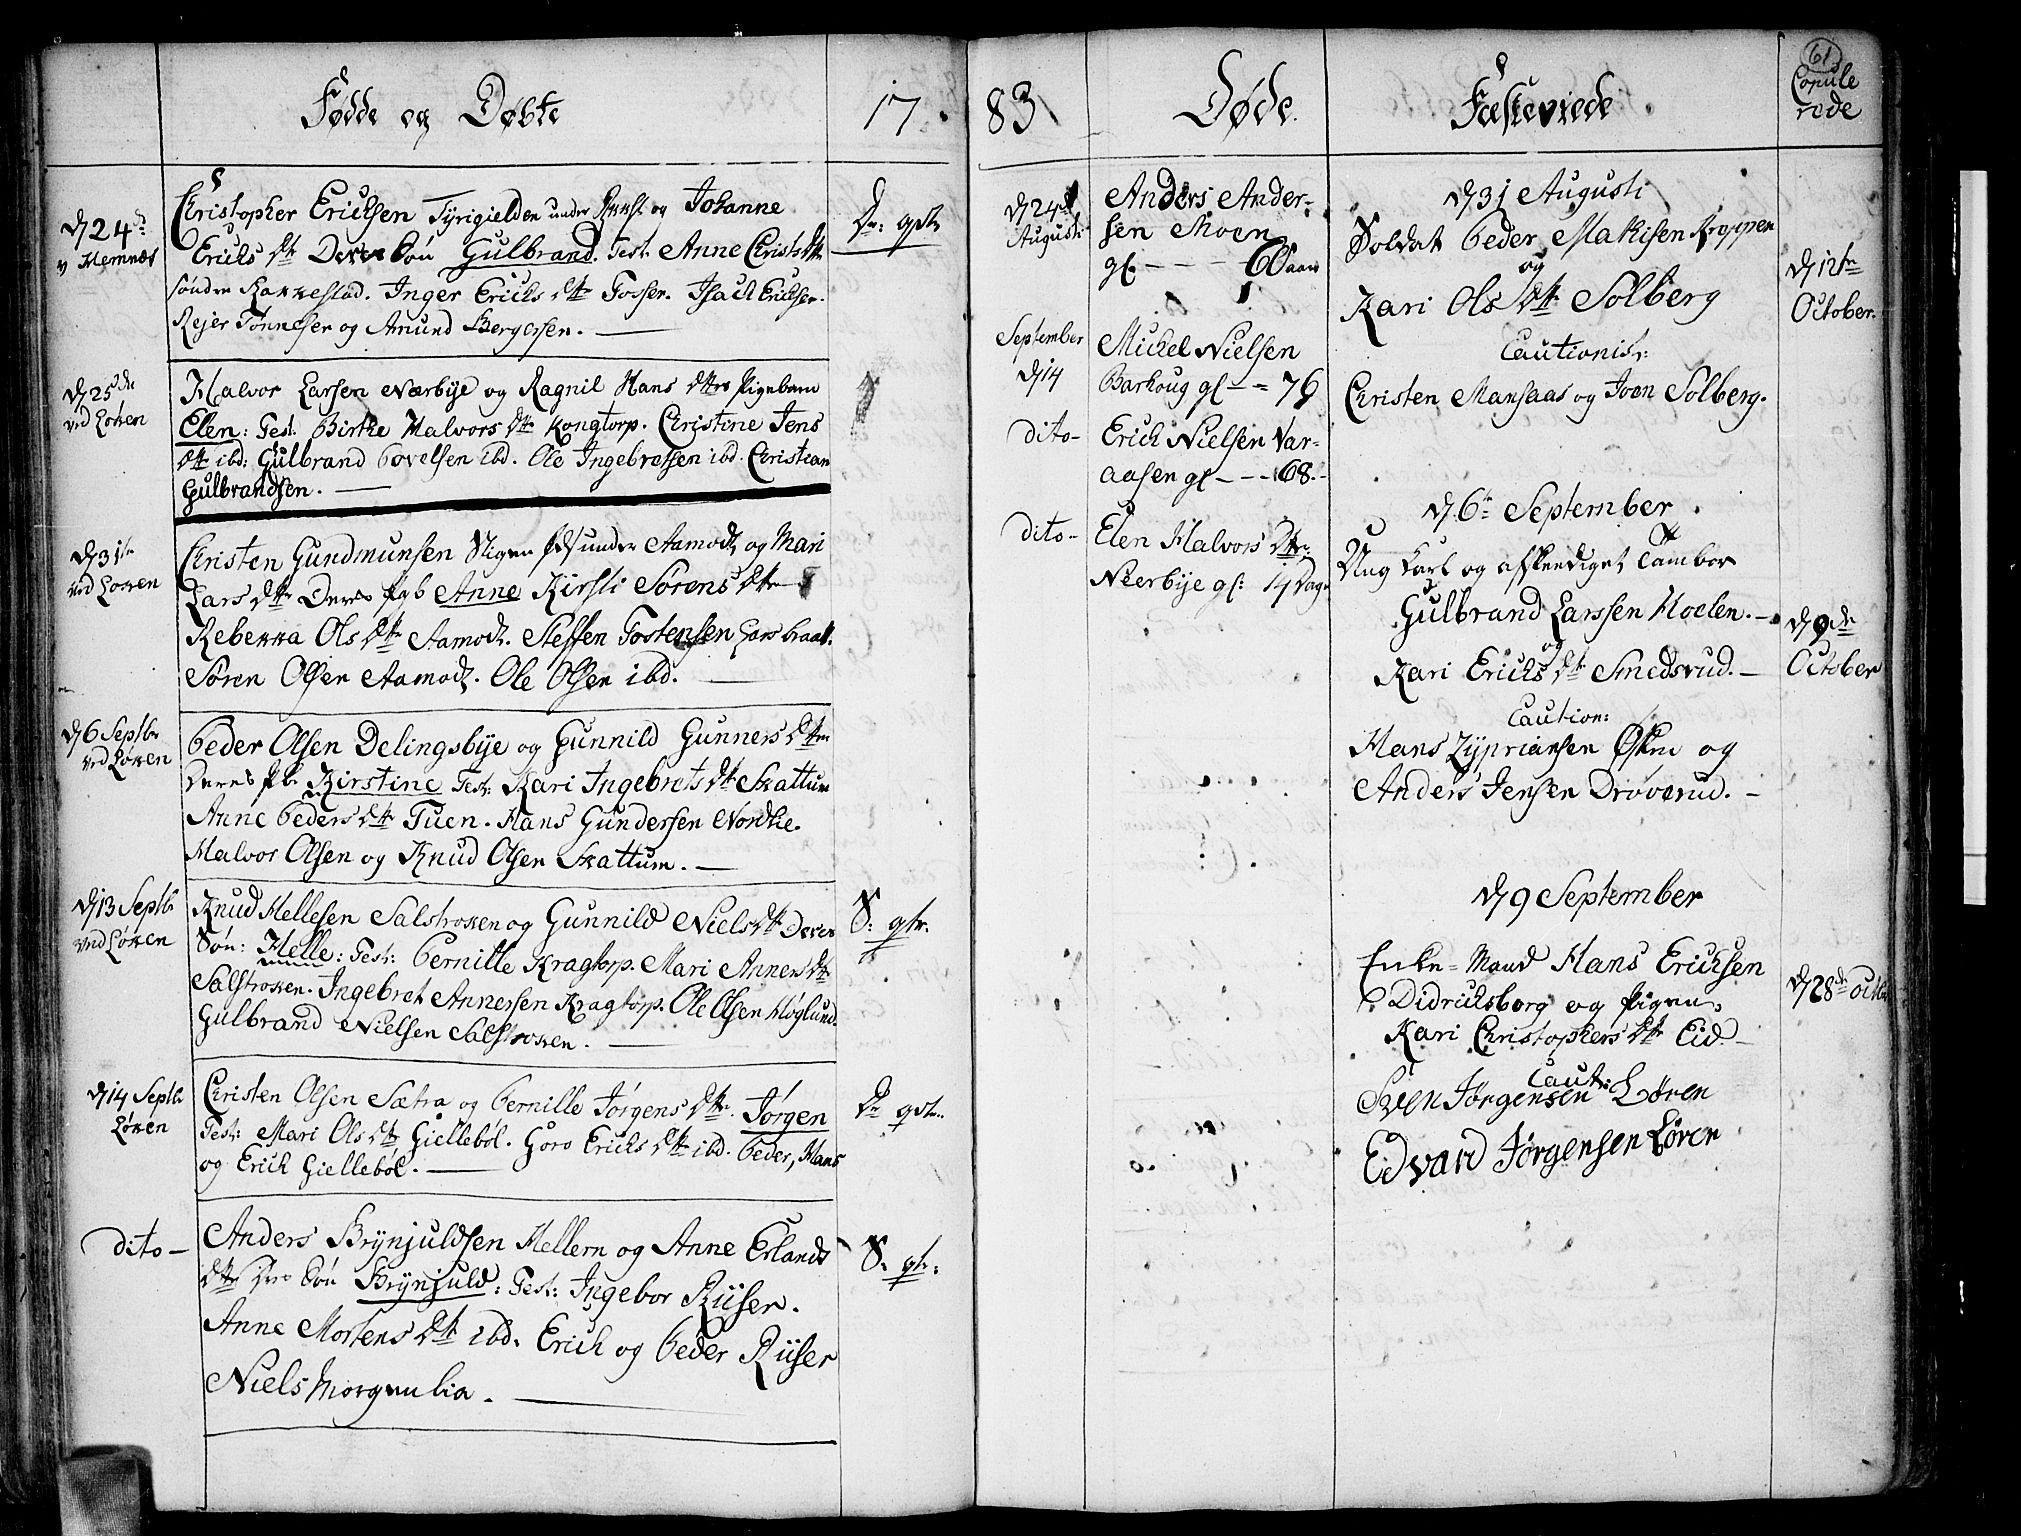 Fødde og Døbte
17.
d 24de
v Hemnæs
Christopher Ericksen Tyrigielden under og Johanne
Ericks Dtr Deres Søn Gulbrand. Test: Anne Christs Dtr
søndre Rakkestad. Inger Ericks Dtr Fosser. Isach Ericksen.
Rejer Tønnesen og Amund Bergersen. —
Dr: qstr
d 25de
ved Løken
Halvor Larsen Nærbye og Ragnil Hans Dttrs Pigebarn
Elen: Test. Birthe Halvors Dtr Kongtorp. Christine Jens
Dtr ibd: Gulbrand Povelsen ibd. Ole Ingebretsen ibd. Christian
Gulbrandsen. —
d 31te
ved Løken
Christen Gundmunsen Stigen under Aamodt og Mari
Lars Dtr Deres Pgb Anne Kirsti Sørens Dtr
Rebekka Ols Dtr Aamodt. Steffen Tostensen Lars braat.
Søren Olsen Aamodt. Ole Olsen ibd. —
d 6 Septbr
ved Løken
Peder Olsen Delingsbye og Gunnild Gunners Dtr
Deres pb. Kirstine Test: Kari Ingebrets Dtr Skattum
Anne Peders Dtr Tuen. Hans Gundersen Nordbye.
Halvor Olsen og Knud Olsen Skattum. —
d 13 Septb
ved Løken
Knud Hellesen Salstrokken og Gunnild Niels Dtr Deres
Søn: Helle: Test: Pernille Kragtorp. Mari Anners Dtr
Salstrokken. Ingebret Annersen Kragtorp. Ole Olsen Høglund.
Gulbrand Nielsen Salstrokken. —
S: qtr.
d 14 Septb
Løken
Christen Olsen Sætra og Pernille Jørgens Dtr. Jørgen
Test: Mari Ols Dtr Gielleböl. Goro Ericks Dtr ibd. Peder, Hans
og Erich Gielleböl. —
Dr qstr.
dito —
Anders Brynjuldsen Hellern og Anne Erlands
Dtr Drs Søn Brynjuld: Test: Ingebor Riiser.
Anne Mortens Dtr ibd. Erich og Peder Riiser
Niels Morgenlia. —
S. qtr:
83
Døde.
Fæsteviede
61
Copule
rede
d 24de
Augusti
Anders Ander-
sen Moen
gl. — — — 60 aar
September
d 14
Michel Nielsen
Barhoug gl — = 79
dito-
Erich Nielsen Var-
aasen gl - - - 68.-
dito-
Elen Halvors Dtr:
Neerbije gl: 14 Dage
d 31 Augusti
Soldat Peder Mathisen Kroppen
og
Kari Ols Dtr Solberg
Cautionist:
Christen Mansaas og Joen Solberg.
d 12te
October.
d 6te September
Ung Karl og afskeediget Tambor
Gulbrand Larssen Moelen. —
og
Kari Ericks Dtr Smedsrud. —
Caution:
Hans Zyprianssen Østen og
Anders Jensen Drøverud. —
d 9de
October
d 9 September
Enke-Mand Hans Ericksen
Didricksborg og Pigen
Kari Christophers Dtr Eid —
Caut:
Sven Jørgensen Løren
Edvard Jørgensen Løren
d 28de Octbr